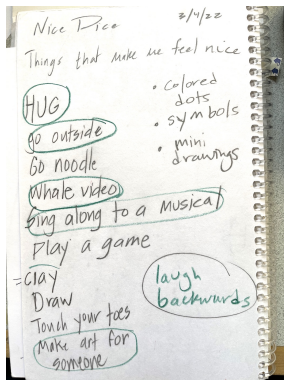 Nice Dice
3/4/22
Things that make me feel nice
HUG
go outside
Go noodle
Whale video
Sing along to a musical
Play a game
= Clay
Draw
Touch your toes
Make art for
someone
• colored
dots
• symbols
• mini
drawings
laugh
backwards